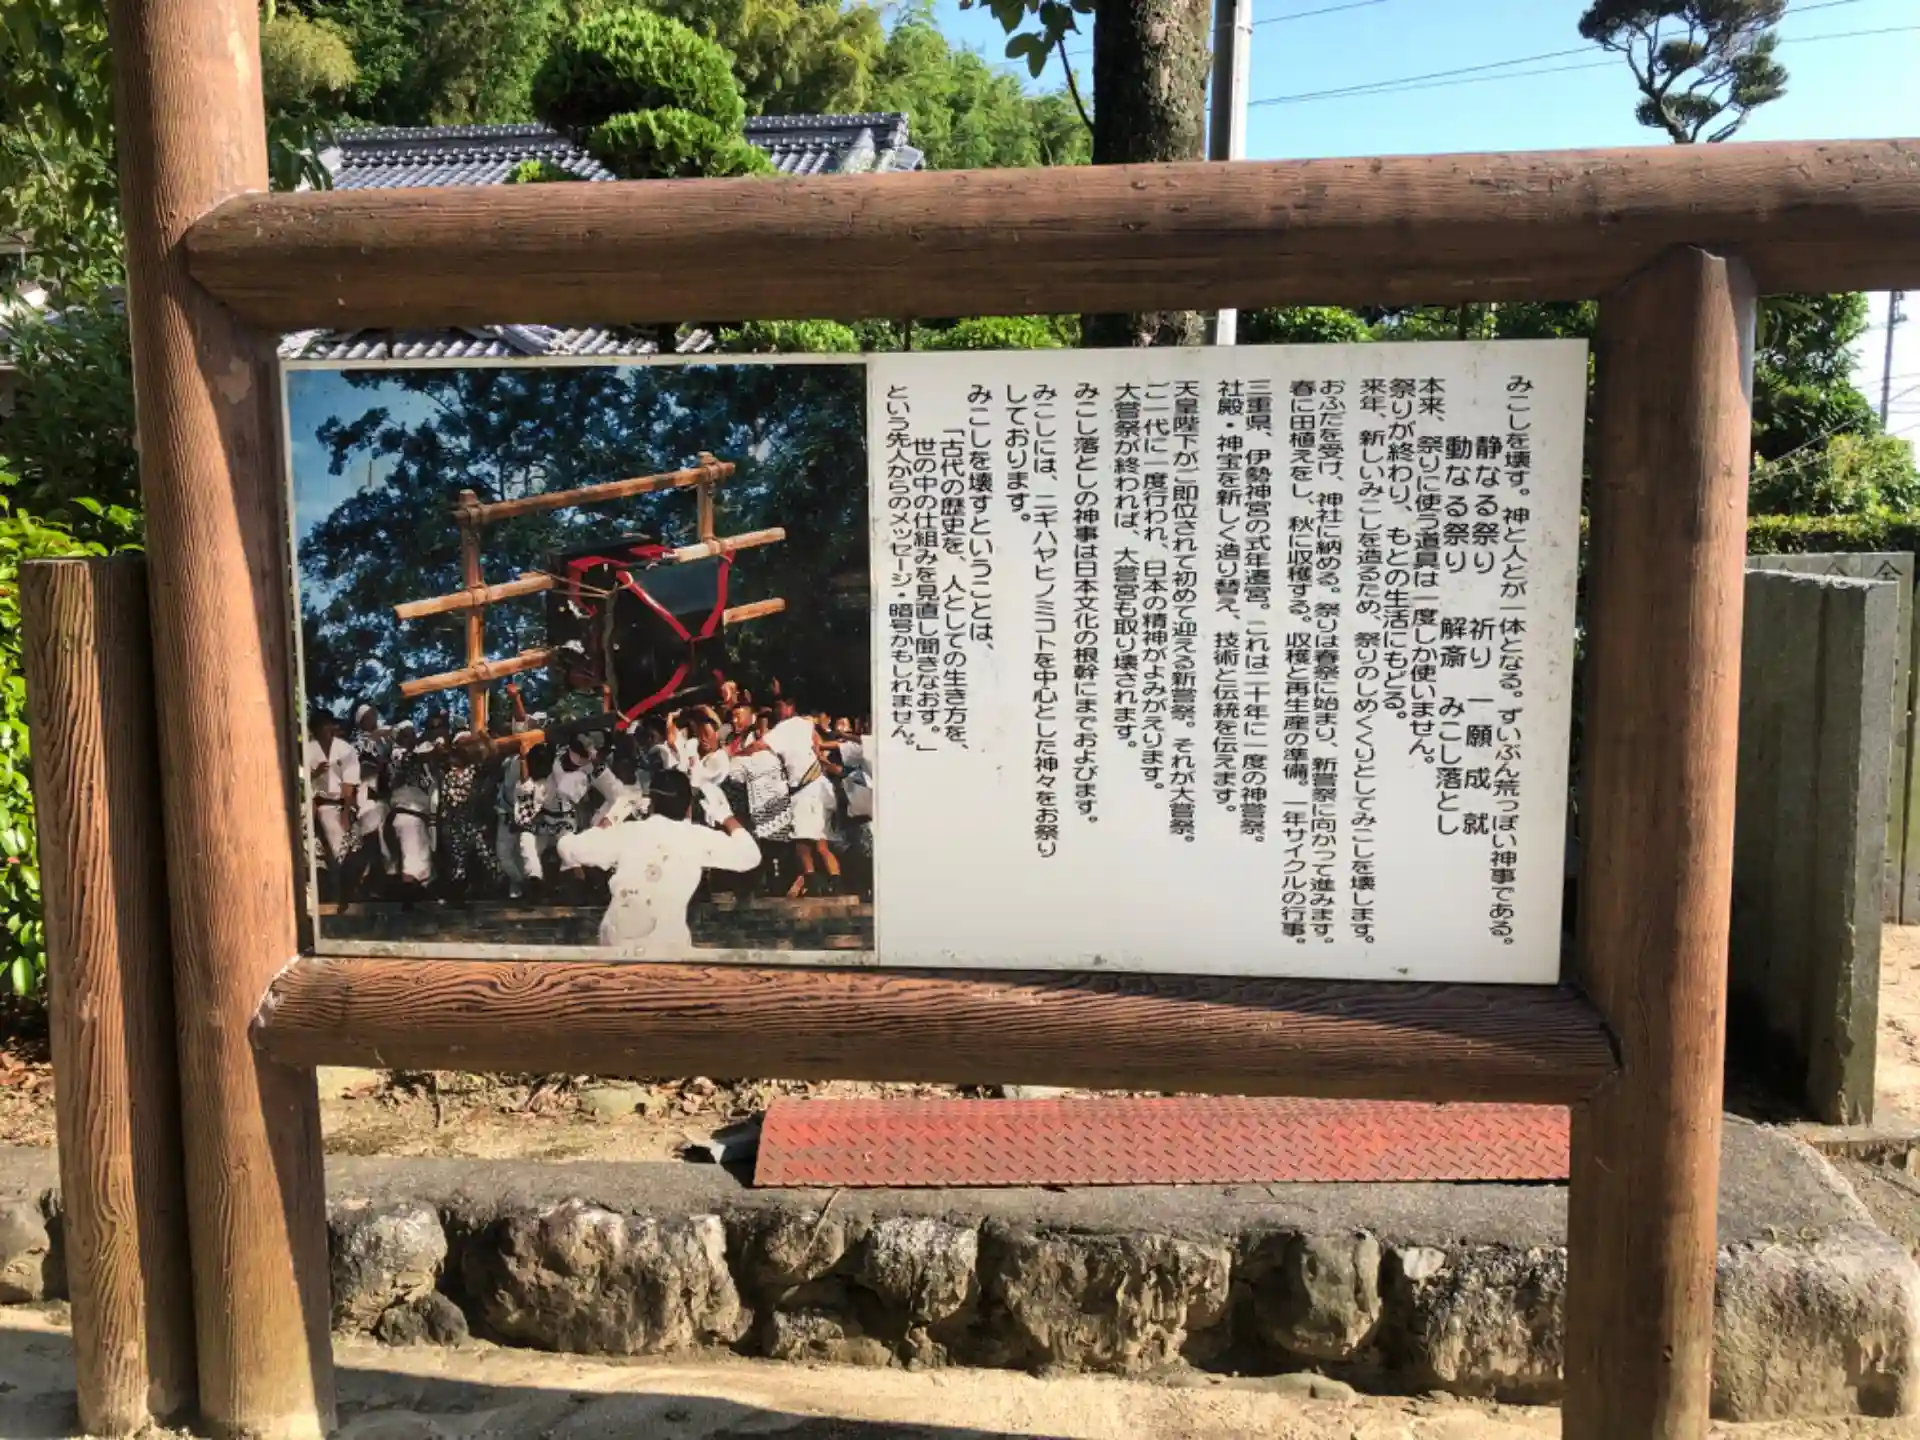 みこしを壊す。神と人とが一体となる。ずいぶん荒っぽい神事である。
静なる祭り　祈り　一願成就
動なる祭り　解斎　みこし落とし
本来、祭りに使う道具は一度しか使いません。
祭りが終わり、もとの生活にもどる。
来年、新しいみこしを造るため、祭りのしめくくりとしてみこしを壊します。
おふだを受け、神社に納める。祭りは春祭に始まり、新嘗祭に向かって進みます。
春に田植えをし、秋に収穫する。収穫と再生産の準備。一年サイクルの行事。
三重県、伊勢神宮の式年遷宮。これは二十年に一度の神嘗祭。
社殿・神宝を新しく造り替え、技術と伝統を伝えます。
天皇陛下がご即位されて初めて迎える新嘗祭。それが大嘗祭。
ご一代に一度行われ、日本の精神がよみがえります。
大嘗祭が終われば、大嘗宮も取り壊されます。
みこし落としの神事は日本文化の根幹にまでおよびます。
みこしには、ニキハヤヒノミコトを中心とした神々をお祭り
しております。
みこしを壊すということは、
「古代の歴史を、人としての生き方を、
世の中の仕組みを見直し聞きなおす。」
という先人からのメッセージ・暗号かもしれません。